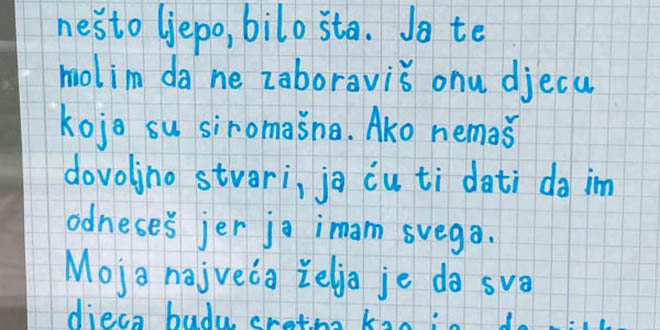 nešto ljepo, bilo šta. Ja te
molim da ne zaboraviš onu djecu
koja su siromašna. Ako nemaš
dovoljno stvari, ja ću ti dati da im
odneseš jer ja imam svega.
Moja najveća želja je da sva
djeca budu sretna kao ja, da